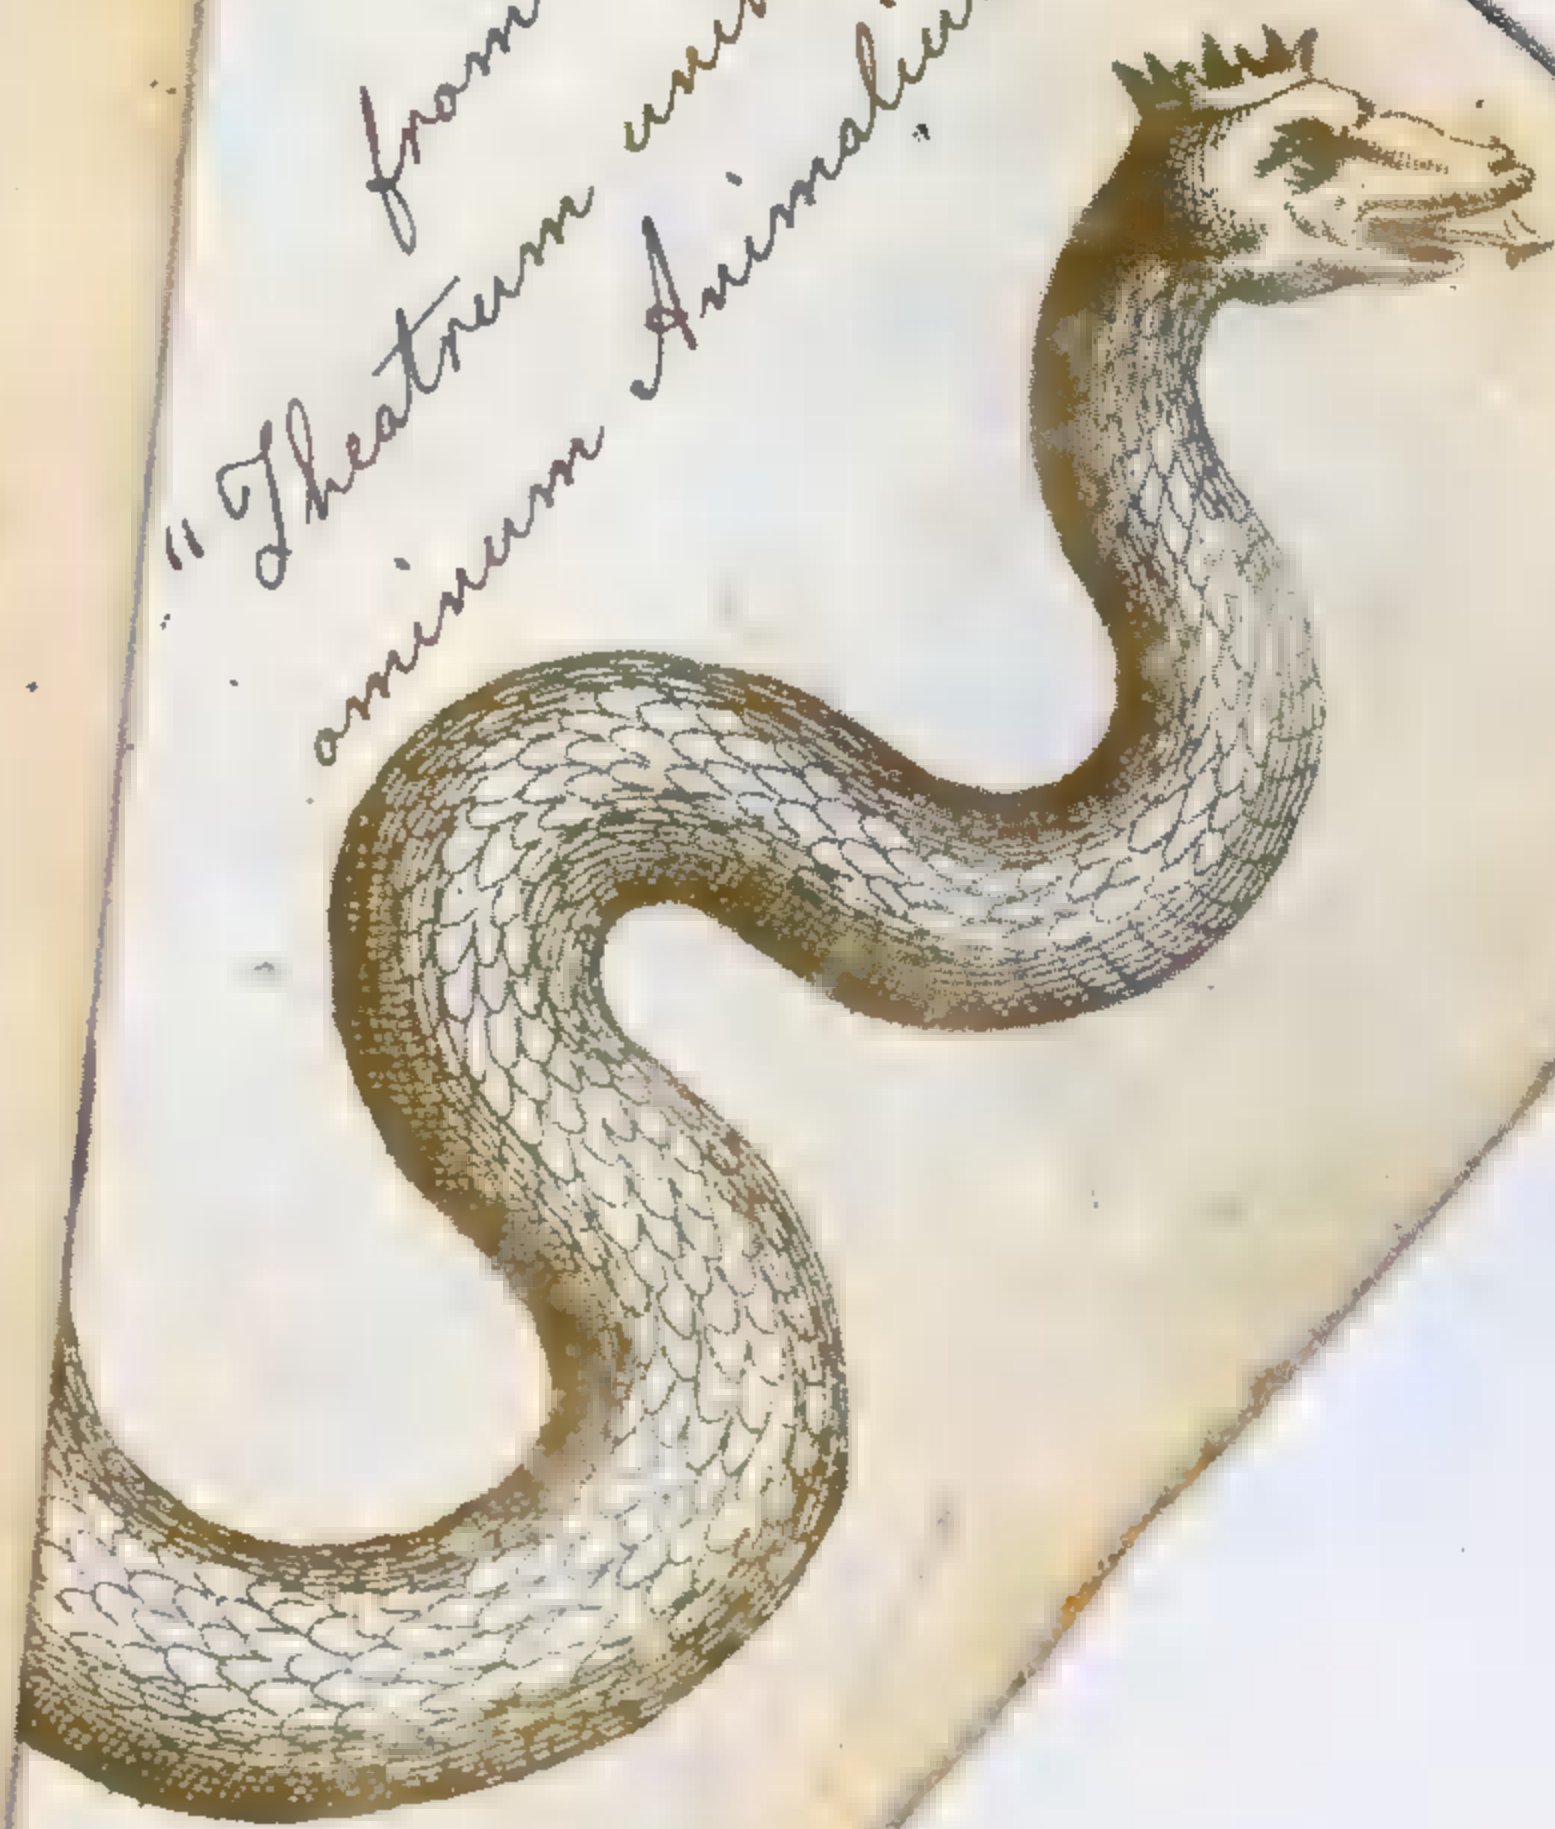 from
"Theatrum uni
ominum Animaliu